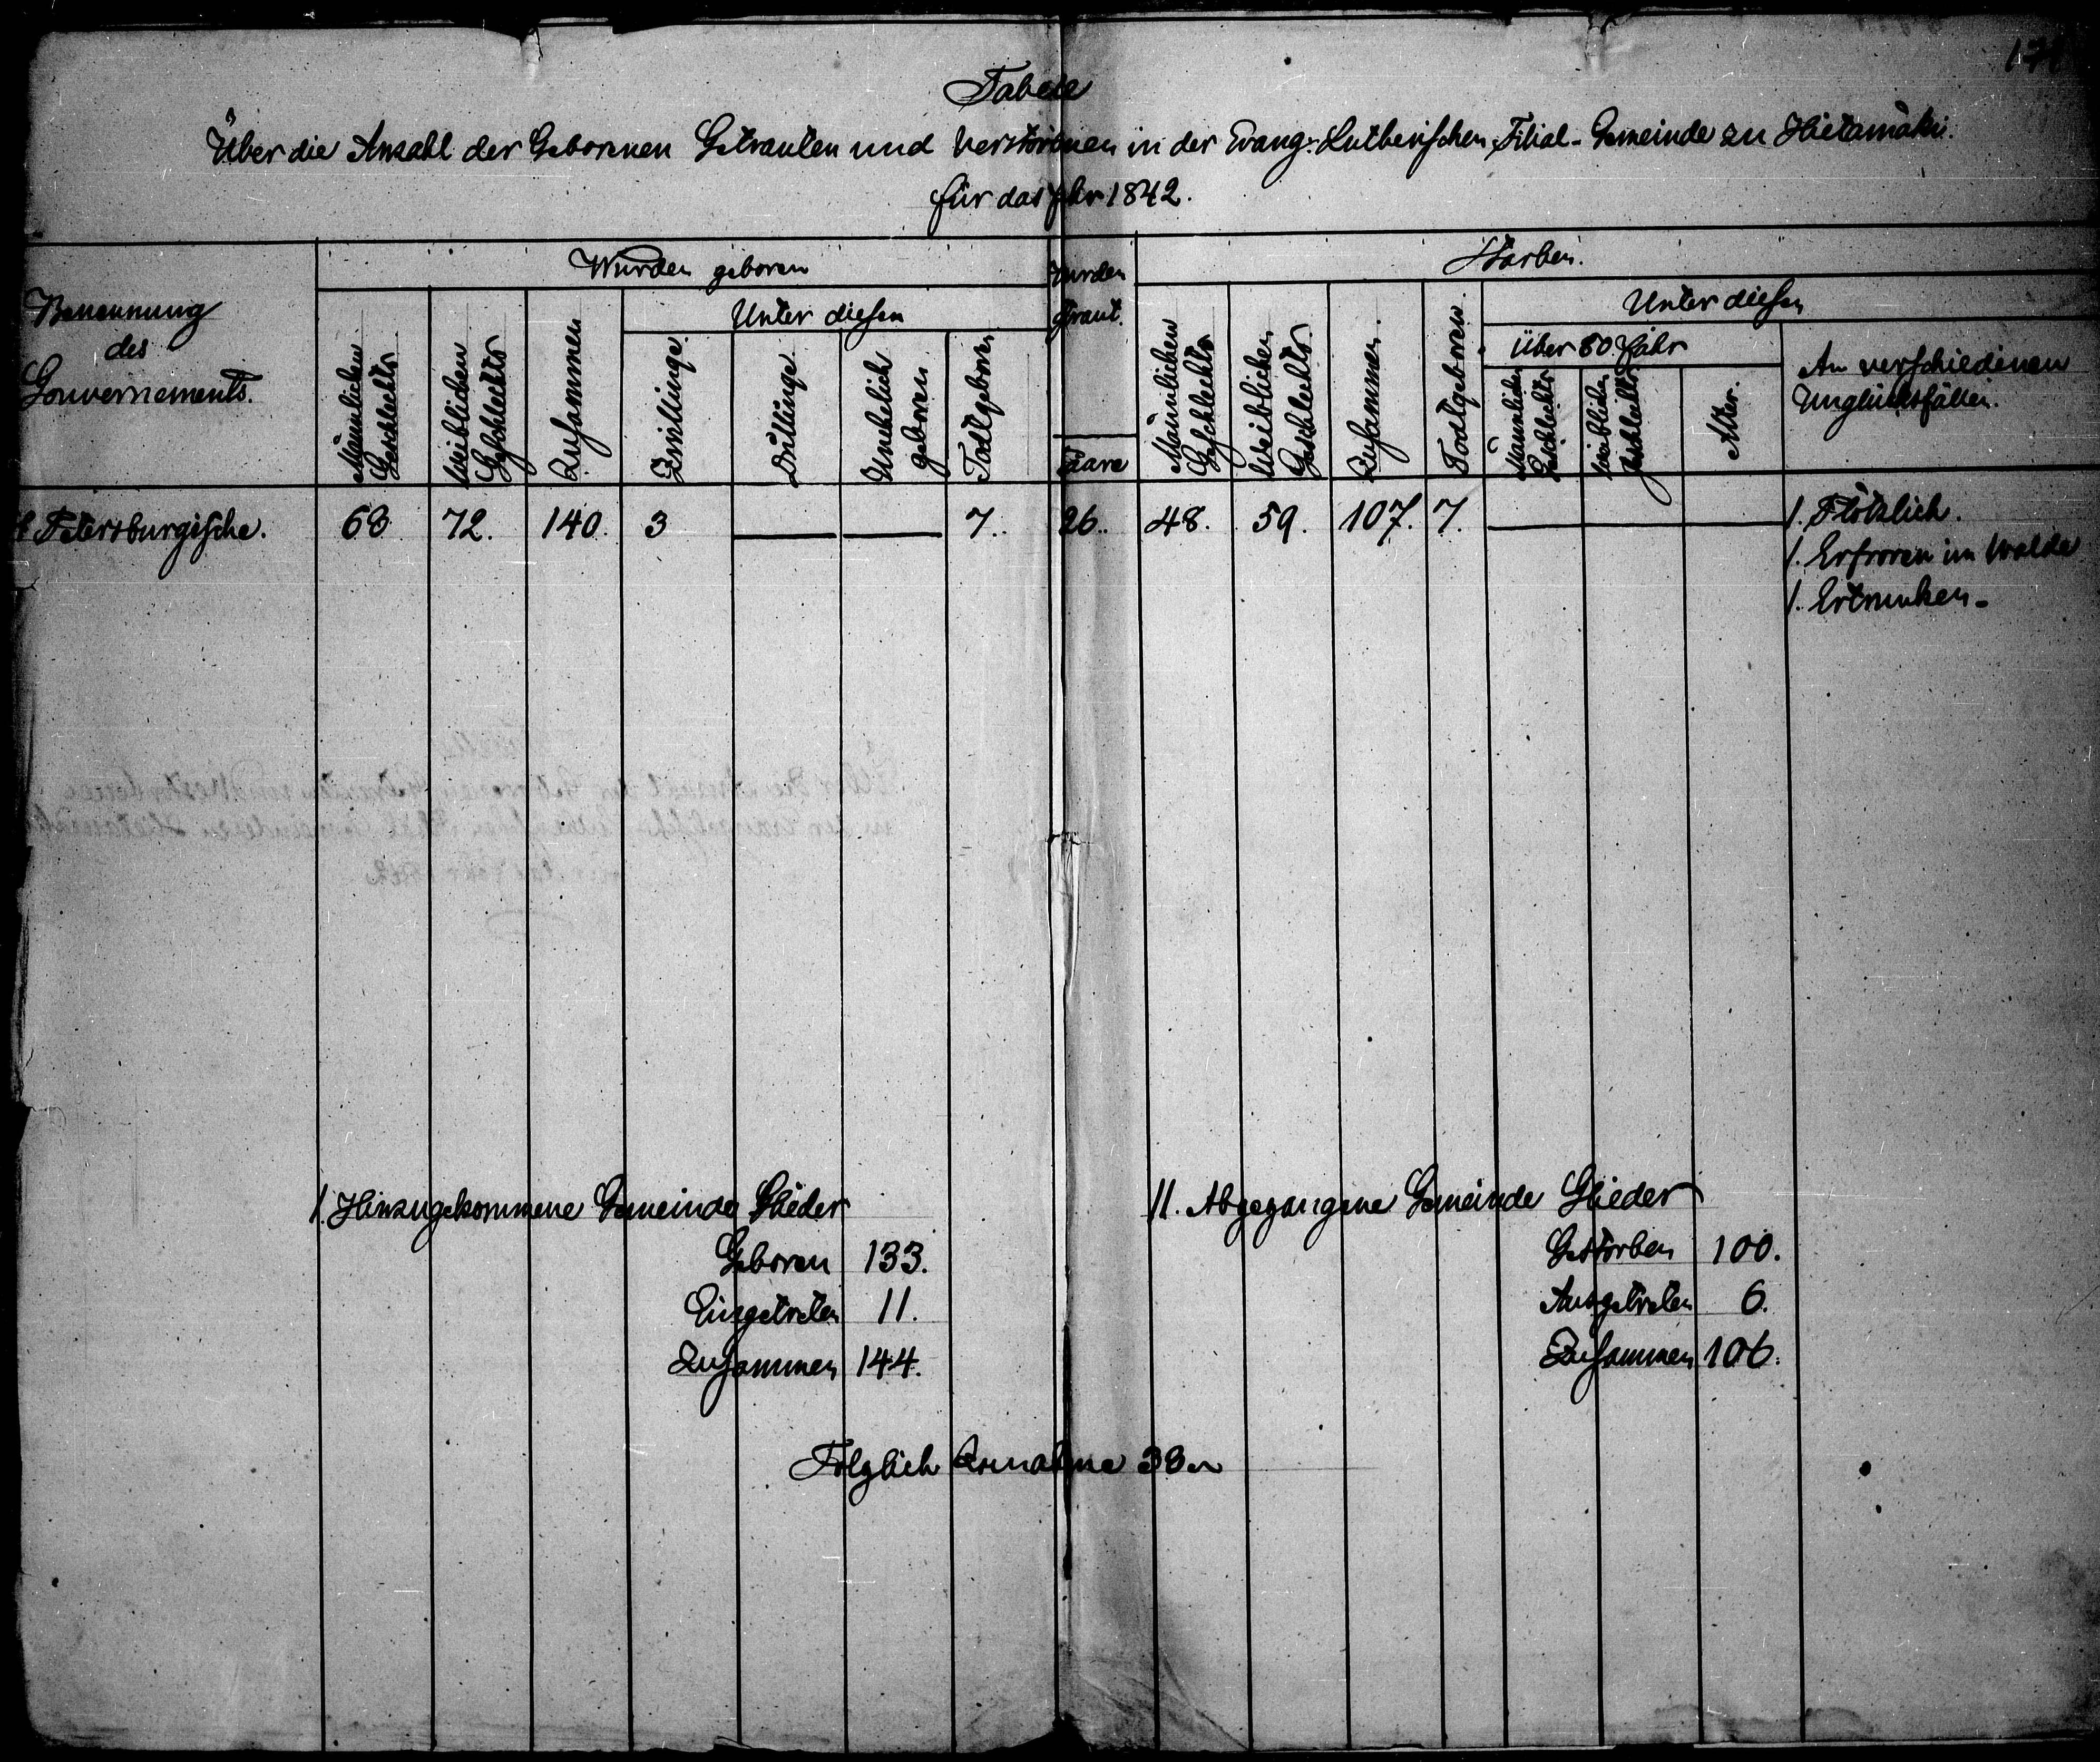 Tabelle
Über die Anzahl der Geborenen Getrauten und Verstorbenen in der Evang: Lutherischen Filial-Gemeinde zu Hietamäki.
für das Jahr 1842.
Benennung
des
Gouvernements.
Wurden geboren
Männlichen
Geschlechts
Weiblichen
Geschlechts
Zusammen
Unter diesen
Zwillinge
Drillinge
Unehelich
geboren
Todtgeboren
Wurden
getraut.
Paare
Starben.
Männlichen
Geschlechts
Weiblichen
Geschlechts
Zusammen.
Todtgeboren.
Unter diesen
über 80 Jahr
Männlichen
Geschlechts
Weiblichen
Geschlechts
Alter.
An verschiedenen
Unglücksfällen.
Petersburgische. 68 72. 140. 3 — — 7. 26. 48. 59. 107. 7. — 1. Plötzlich.
1. Erfroren im Walde
1. Ertrunken.
I. Hinzugekommene Gemeinde Glieder
Geboren 133.
Eingetreten 11.
Zusammen 144.
II. Abgegangene Gemeinde Glieder
Gestorben 100.
Ausgetreten 6.
Zusammen 106.
Folglich Zunahme 38